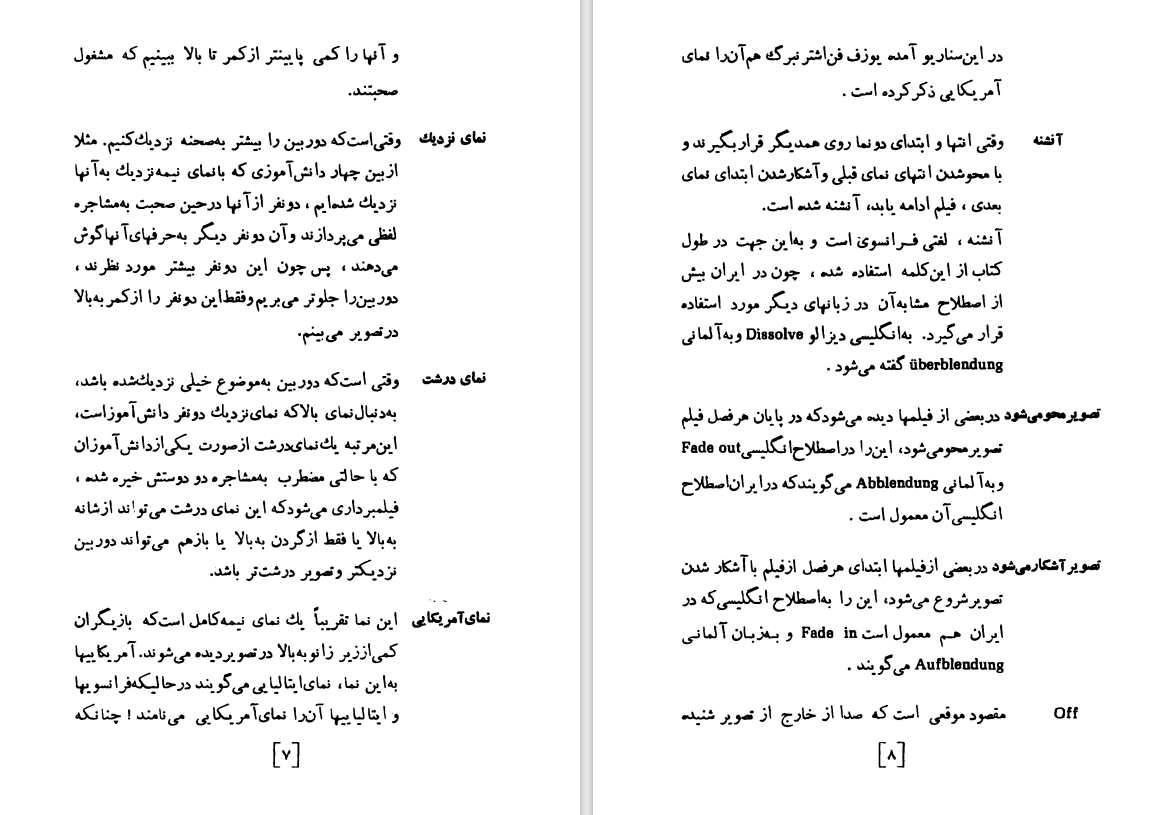 و آنها را کمی پایینتر ازکمر تا بالا ببینیم که مشغول
صحبتند.
نمای نزدیك وقتی‌است‌که دوربین را بیشتر به‌صحنه نزدیك‌کنیم. مثلا
ازبین چهار دانش‌آموزی که بانمای نیمه‌نزدیك به‌آنها
نزدیك شده‌ایم ، دونفر ازآنها درحین صحبت به‌مشاجره
لفظی می‌پردازند وآن دونفر دیگر به‌حرفهای‌آنهاگوش
می‌دهند ، پس چون این دونفر بیشتر مورد نظرند ،
دوربین‌را جلوتر می‌بریم وفقط‌این دونفر را ازکمر به‌بالا
در تصویر می‌بینم.
نمای درشت وقتی است‌که دوربین به‌موضوع خیلی نزدیك‌شده باشد،
به‌دنبال‌نمای بالاکه نمای‌نزدیك دونفر دانش‌آموزاست،
این‌مرتبه یك‌نمای‌درشت ازصورت یکی‌ازدانش‌آموزان
که با حالتی مضطرب به‌مشاجره دو دوستش خیره شده ،
فیلمبرداری می‌شودکه این نمای درشت می‌تواند ازشانه
به‌بالا یا فقط ازگردن به‌بالا یا بازهم می‌تواند دوربین
نزدیکتر وتصویر درشت‌تر باشد.
نمای‌آمریکایی این نما تقریباً یك نمای نیمه‌کامل است‌که بازیگران
کمی‌اززیر زانوبه‌بالا درتصویردیده می‌شوند. آمریکاییها
به‌این نما، نمای‌ایتالیایی می‌گویند درحالیکه‌فرانسویها
و ایتالیاییها آن‌را نمای‌آمریکایی می‌نامند ! چنانکه
[۷]
در این‌سناریو آمده یوزف فن‌اشترنبرگ هم‌آن‌را نمای
آمریکایی ذکرکرده است .
آنشنه وقتی انتها و ابتدای دونما روی همدیگر قرار بگیرند و
با محوشدن انتهای نمای قبلی وآشکارشدن ابتدای نمای
بعدی ، فیلم ادامه یابد، آنشنه شده است.
آنشنه ، لغتی فـرانسوی است و به‌این جهت در طول
کتاب از این‌کلمه استفاده شده ، چون در ایران بیش
از اصطلاح مشابه‌آن در زبانهای دیگر مورد استفاده
قرار می‌گیرد. به‌انگلیسی دیزالو Dissolve وبه‌آلمانی
überblendung گفته می‌شود .
تصویرمحومی‌شود دربعضی از فیلمها دیده می‌شودکه در پایان هرفصل فیلم
تصویرمحومی‌شود، این‌را دراصطلاح‌انگلیسیFade out
وبه‌آلمانی Abblendung می‌گویندکه درایران‌اصطلاح
انگلیسی‌آن معمول است .
تصویرآشکارمی‌شود دربعضی ازفیلمها ابتدای هرفصل ازفیلم با آشکار شدن
تصویرشروع می‌شود، این را به‌اصطلاح انگلیسی‌که در
ایران هـم معمول است Fade in و بـه‌زبـان آلمانـی
Aufblendung می‌گویند .
Off مقصود موقعی است که صدا از خارج از تصویر شنیده
[۸]